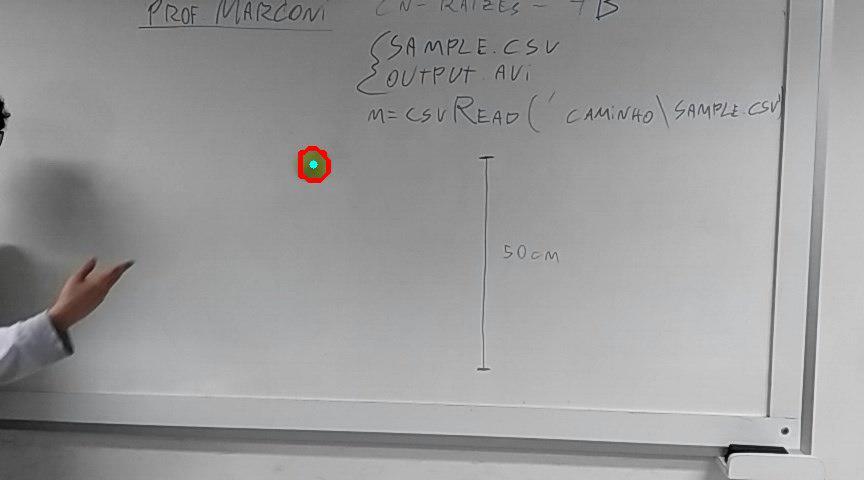 PROF MARCONI CN-RAIZES - 7B
SAMPLE.CSV
OUTPUT.AVi
M=CSVREAD('CAMINHO\SAMPLE.CSV
50cm